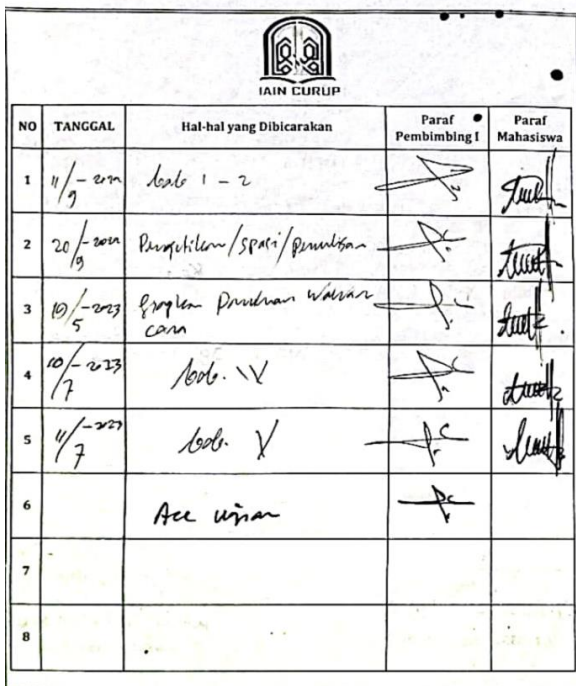 IAIN CURUP
NO TANGGAL Hal-hal yang Dibicarakan Paraf Pembimbing I Paraf Mahasiswa
1 11/9 - bab 1 - 2
2 20/9 - /spasi/penulisan
3 10/5 - 2023 Panduan Wawan
cara
4 10/7 - 2023 bab. IV
5 11/7 - 2023 bab. V
6 Acc ujian
7
8